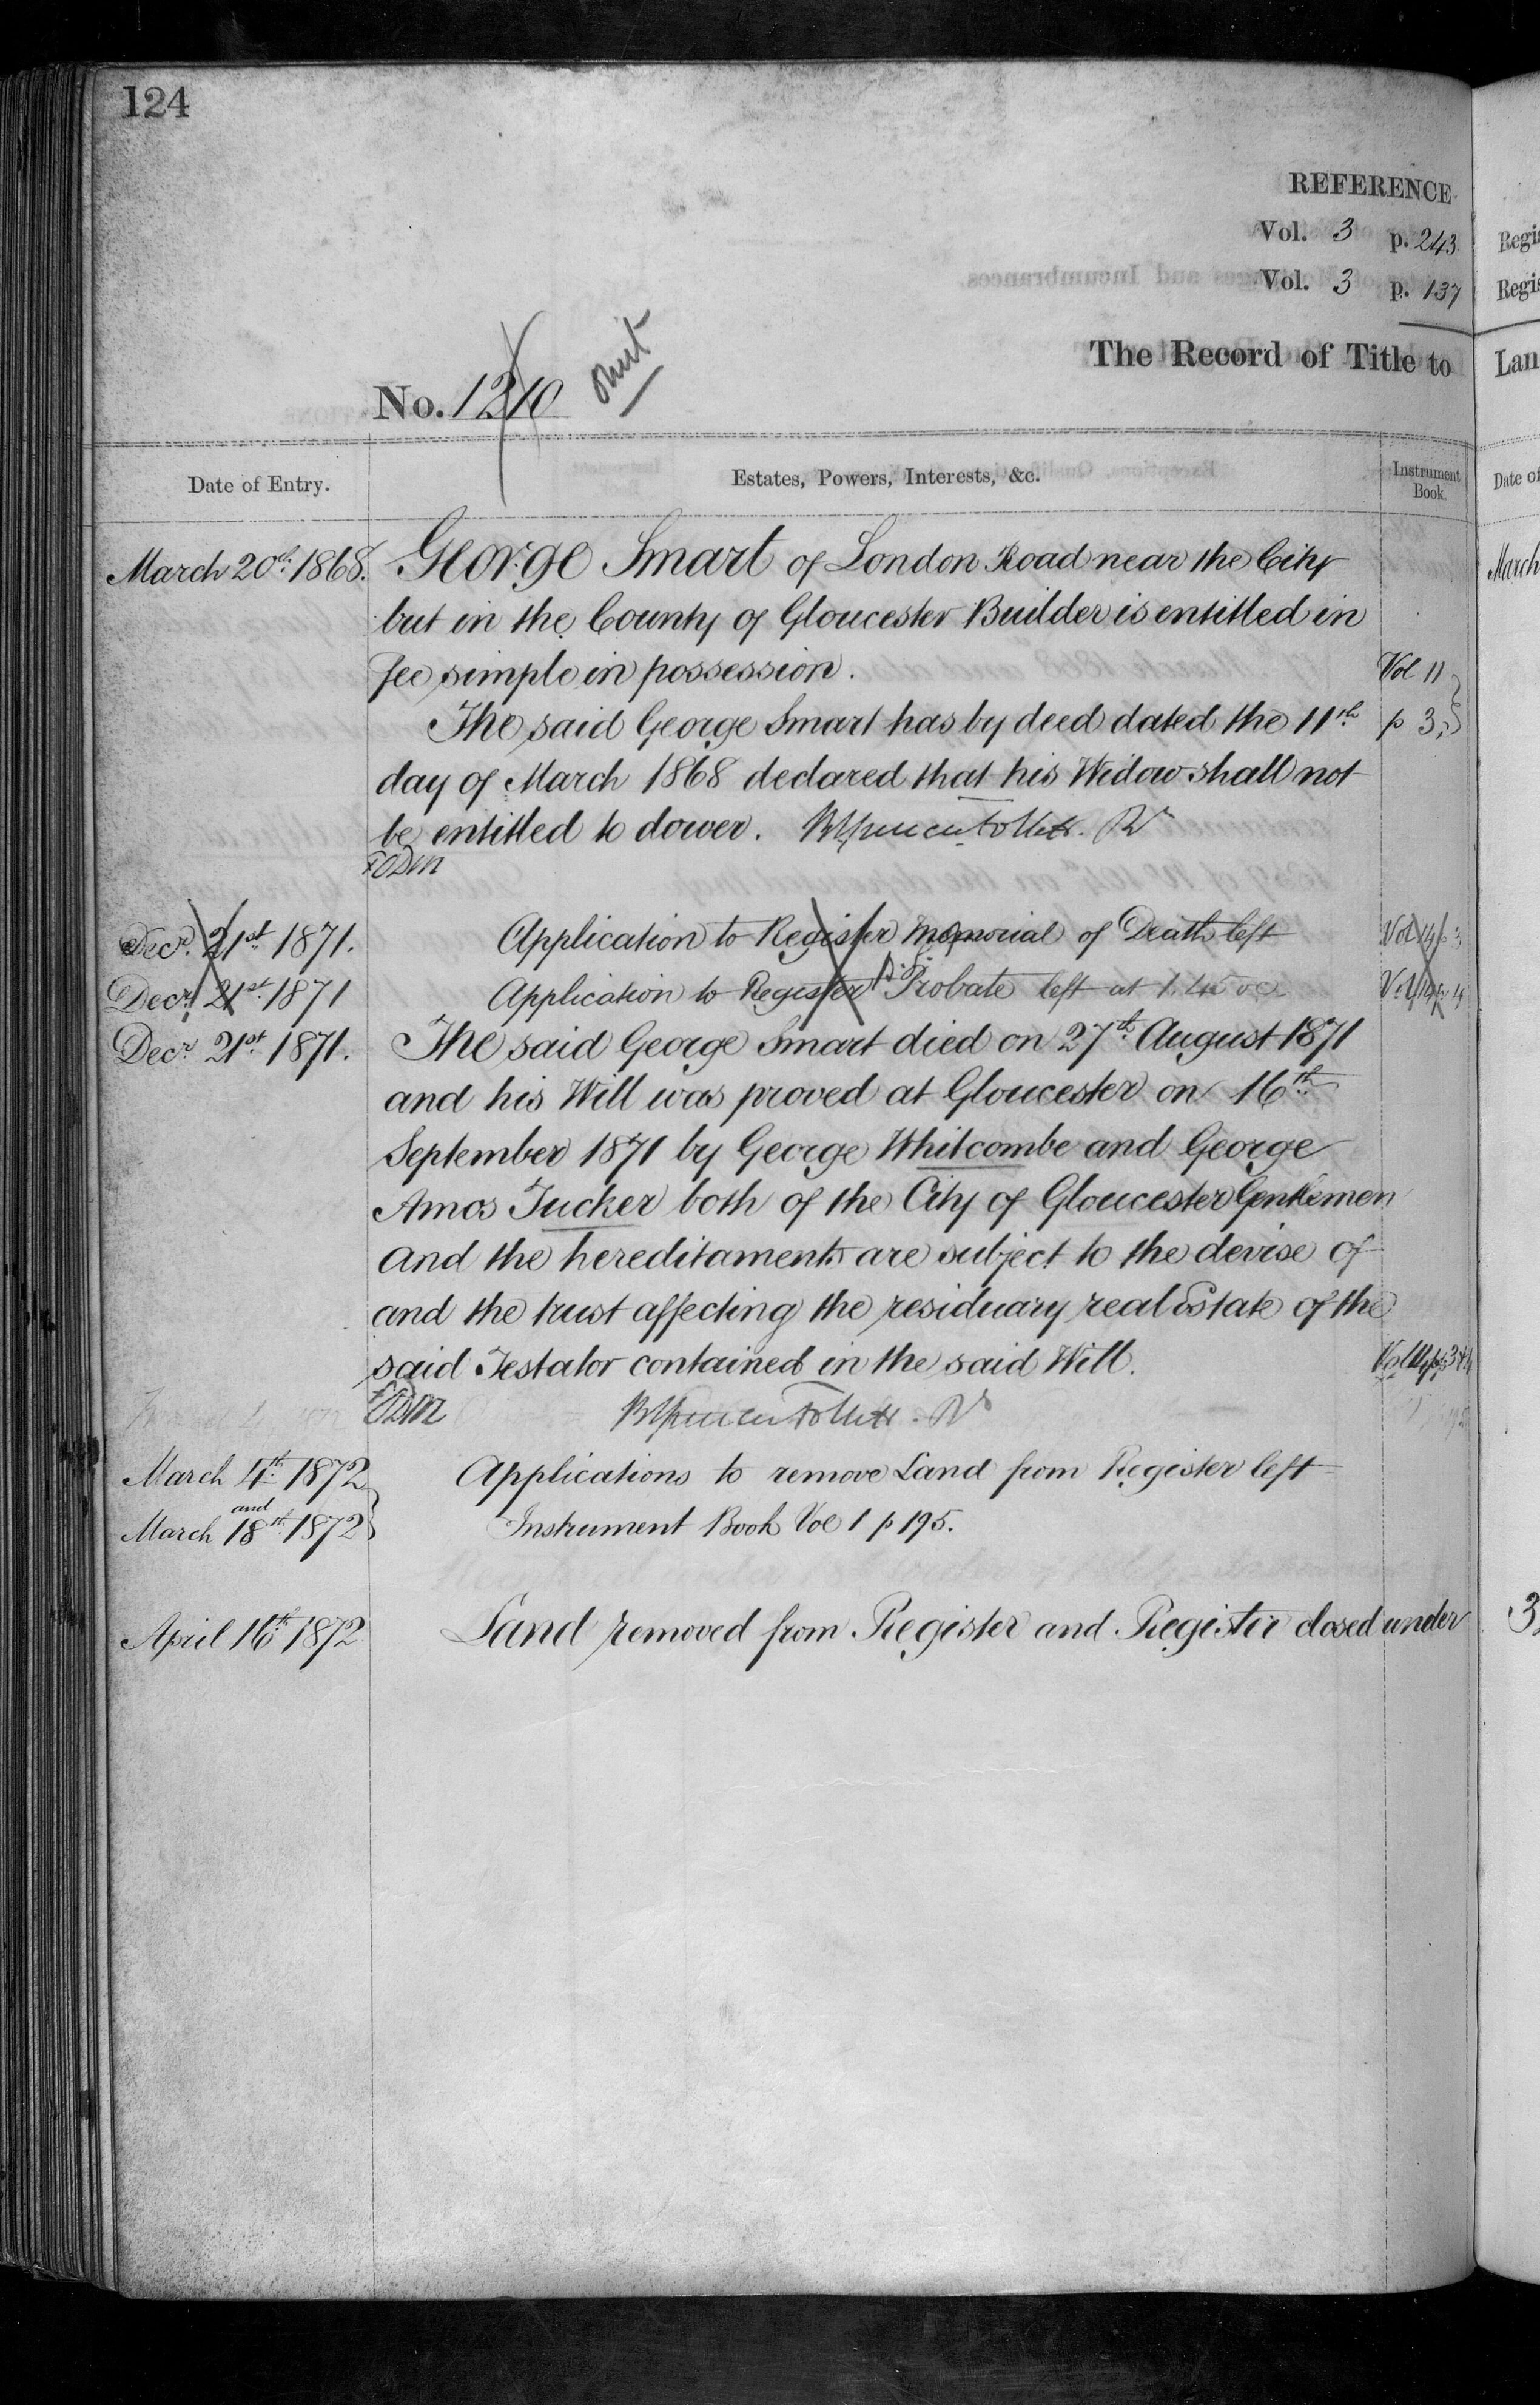 124
REFERENCE
Vol. 3 p. 243
Vol. 3 p. 137
The Record of Title to
No. 1210 omit
Date of Entry. Estates, Powers, Interests, &c. Instrument Book.
March 20th 1868. George Smart of London Road near the City
but in the County of Gloucester Builder is entitled in
fee simple in possession. Vol 11
The said George Smart has by deed dated the 11th p 3
day of March 1868 declared that his Widow shall not
be entitled to dower.
Decr. 21st 1871. Application to Register Memorial of Death left Vol 14 p 3
Decr. 21st 1871 Application to Register Probate left at 1.45 Vol 14 p 4
Decr. 21st 1871. The said George Smart died on 27th August 1871
and his Will was proved at Gloucester on 16th
September 1871 by George Whitcombe and George
Amos Tucker both of the City of Gloucester Gentlemen
and the hereditaments are subject to the devise of
and the trust affecting the residuary real Estate of the
said Testator contained in the said Will.
March 4th 1872 Applications to remove Land from Register left
and
March 18th 1872 Instrument Book Vol 1 p 195.
April 16th 1872 Land removed from Register and Register closed under
Lan
Date of
March